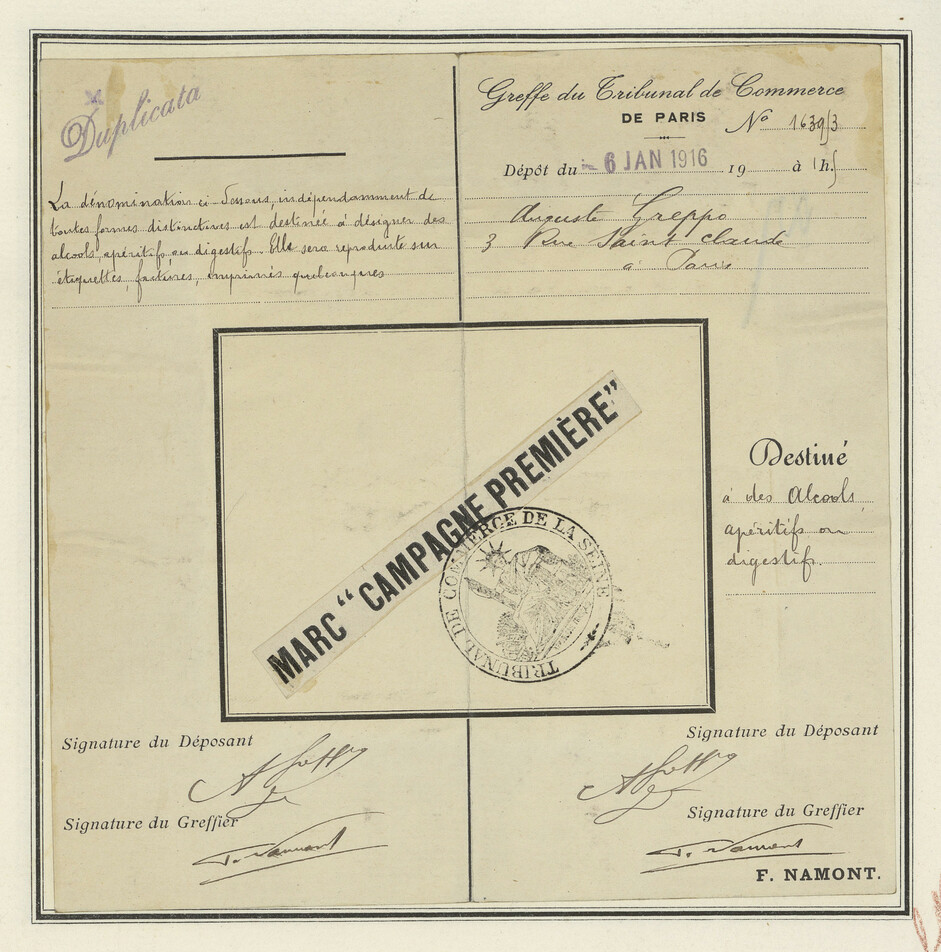 Duplicata
La dénomination ci-dessous, indépendamment de
toutes formes distinctives est destinée à désigner des
alcools, apéritifs ou digestifs. Elle sera reproduite sur
étiquettes, factures, imprimés quelconques
Greffe du Tribunal de Commerce
DE PARIS
No
Dépôt du 6 JAN 1916 19 à 1h5
Auguste Greppo
3 Rue Saint Claude
à Paris
MARC “CAMPAGNE PREMIÈRE”
TRIBUNAL DE COMMERCE DE LA SEINE
Destiné
à des Alcools,
apéritifs ou
digestifs.
Signature du Déposant
Signature du Greffier
Signature du Déposant
Signature du Greffier
F. NAMONT.